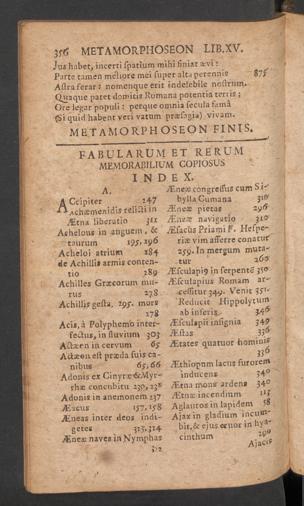 356 METAMORPHOSEON LIB.XV.
Jus habet, incerti spatium mihi finiat ævi:
Parte tamen meliore mei super alta perennis 875
Astra ferar: nomenque erit indelebile nostrum.
Quaque patet domitis Romana potentia terris;
Ore legar populi: perque omnia secula famâ
(Si quid habent veri vatum præsagia) vivam.
METAMORPHOSEON FINIS.
FABULARUM ET RERUM
MEMORABILIUM COPIOSUS
INDEX.
A.
ACcipiter 247
Achæmenidis relicti in
Ætna liberatio 312
Achelous in anguem, &
taurum 195, 196
Acheloi atrium 184
de Achillis armis conten-
tio 289
Achilles Græcorum mu-
rus 278
Achillis gesta. 195. mors
278
Acis, à Polyphemo inter-
fectus, in fluvium 303
Actæon in cervum 65
Actæon est præda suis ca-
nibus 65, 66
Adonis ex Cinyræ & Myr-
rhæ concubitu 230, 238
Adonis in anemonem 237
Æacus 157, 158
Æneas inter deos indi-
getes 313, 314
Æneæ naves in Nymphas
312
Æneæ congressus cum Si-
bylla Cumana 310
Æneæ pietas 296
Æneæ navigatio 310
Æsacus Priami F. Hespe-
riæ vim afferre conatur
259. In mergum muta-
tur 260
Æsculapius in serpente 350
Æsculapius Romam ar-
cessitur 349. Venit 351.
Reducit Hippolytum
ab inferis 346
Æsculapii insignia 349
Æstas 336
Ætates quatuor hominis
336
Æthiopum lacus furorem
inducens 340
Ætna mons ardens 340
Ætnæ incendium 115
Aglauros in lapidem 58
Ajax in gladium incum-
bit, & ejus cruor in hya-
cinthum 290
Ajacis